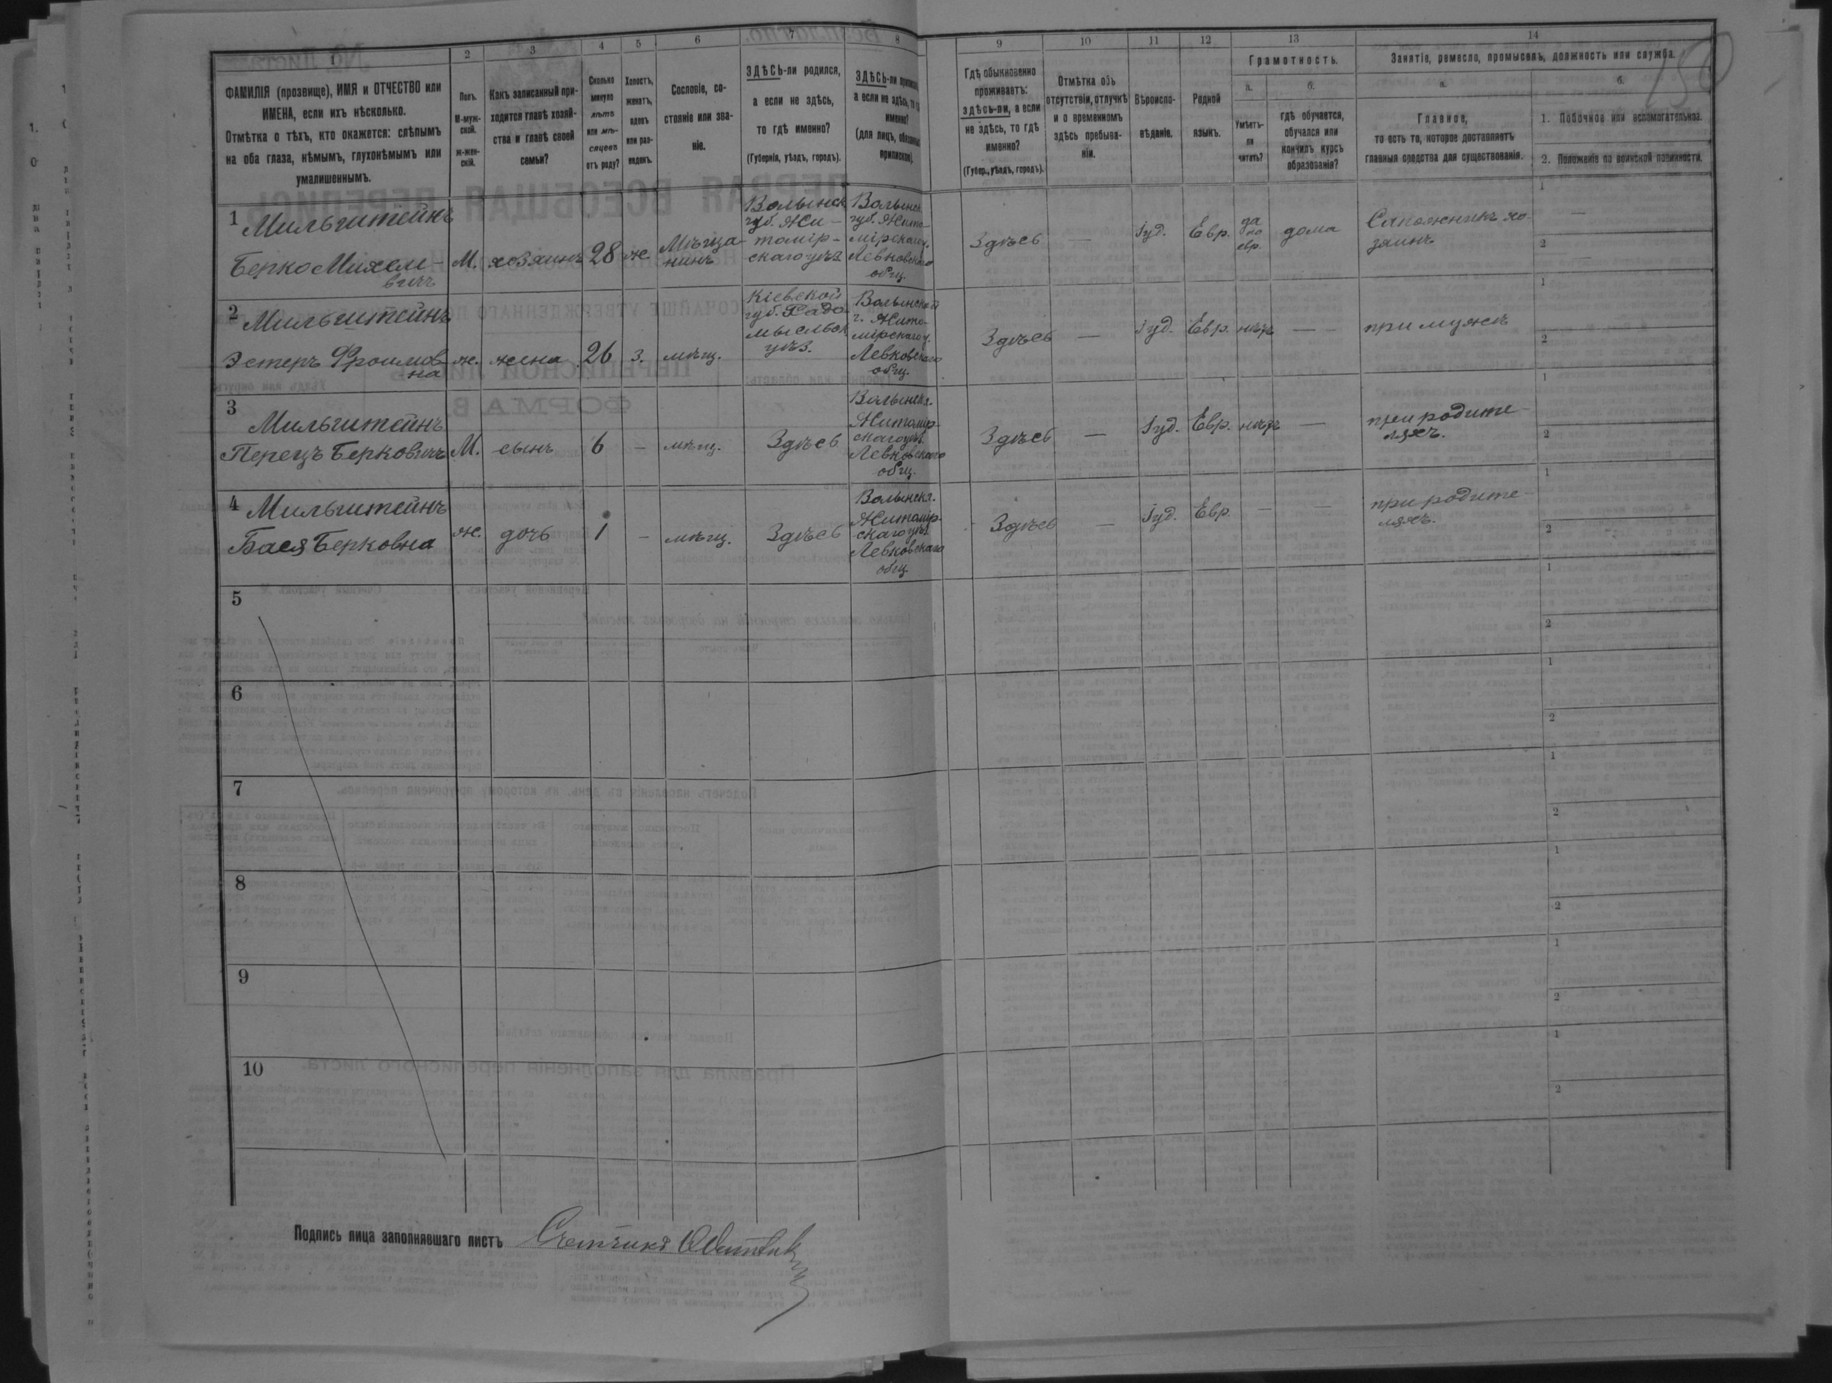 1 2 3 4 5 6 7 8 9 10 11 12 13 14
ФАМИЛІЯ (прозвище), ИМЯ и ОТЧЕСТВО или
ИМЕНА, если ихъ нѣсколько.
Отмѣтка о тѣхъ, кто окажется: слѣпымъ
на оба глаза, нѣмымъ, глухонѣмымъ или
умалишеннымъ.
Полъ.
М-муж-
ской.
ж-жен-
скій.
Какъ записанный при-
ходится главѣ хозяй-
ства и главѣ своей
семьи?
Сколько
минуло
лѣтъ
или мѣ-
сяцевъ
отъ роду?
Холостъ,
женатъ,
вдовъ
или раз-
веденъ.
Сословіе, со-
стояніе или зва-
ніе.
ЗДѢСЬ-ли родился,
а если не здѣсь,
то гдѣ именно?
(Губернія, уѣздъ, городъ).
ЗДѢСЬ-ли
а если не здѣсь, то гдѣ
именно?
(для лицъ,
Гдѣ обыкновенно
проживаетъ:
здѣсь-ли, а если
не здѣсь, то гдѣ
именно?
(Губер., уѣздъ, городъ).
Отмѣтка объ
отсутствіи, отлучкѣ
и о временномъ
здѣсь пребыва-
ніи.
Вѣроиспо-
вѣданіе.
Родной
языкъ.
Грамотность.
а.
Умѣетъ-
ли
читать?
б.
гдѣ обучается,
обучался или
кончилъ курсъ
образованія?
Занятіе, ремесло, промыселъ, должность или служба.
а.
Главное,
то есть то, которое доставляетъ
главныя средства для существованія.
б.
1. Побочное или вспомогательное.
2. Положеніе по воинской повинности.
1 Мильштейнъ
Берко Михеле-
вичъ
М. хозяинъ 28 ж.
Мѣща-
нинъ
Волынск.
губ. Жи-
томір-
скаго уѣз.
Волынск.
губ. Жито-
мірскаго у.
Левковскаго
общ.
Здѣсь — Іуд. Евр.
да
по
евр.
дома
Сапожникъ хо-
зяинъ
1 —
2 —
2 Мильштейнъ
Эстеръ Фроимов-
на
ж. жена 26 з. мѣщ.
Кіевской
губ. Радо-
мысльск.
уѣз.
Волынской
г. Жито-
мірскаго у.
Левковскаго
общ.
Здѣсь — Іуд. Евр. нѣтъ — — при мужѣ
1
2
3 Мильштейнъ
Перецъ Берковичъ М. сынъ 6 — мѣщ. Здѣсь
Волынск.
Житомір-
скаго уѣз.
Левковскаго
общ.
Здѣсь — Іуд. Евр. нѣтъ —
при родите-
ляхъ.
1
2
4 Мильштейнъ
Бася Берковна ж. дочь 1 — мѣщ. Здѣсь
Волынск.
Житомір-
скаго уѣз.
Левковскаго
общ.
Здѣсь — Іуд. Евр. — —
при родите-
ляхъ.
1
2
5
1
2
6
1
2
7
1
2
8
1
2
9
1
2
10
1
2
Подпись лица заполнявшаго листъ Счетчикъ